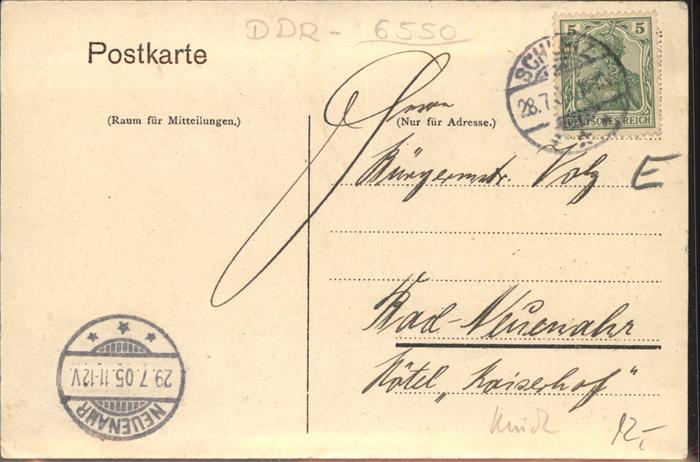 DDR - 6550
Postkarte
(Raum für Mitteilungen.)
(Nur für Adresse.)
5 5
DEUTSCHES REICH
28.7.
Bürgermstr. Volz
E
Bad-Neuenahr
Hôtel „Kaiserhof"
12,-
29.7.05.11-12V.
NEUENAHR